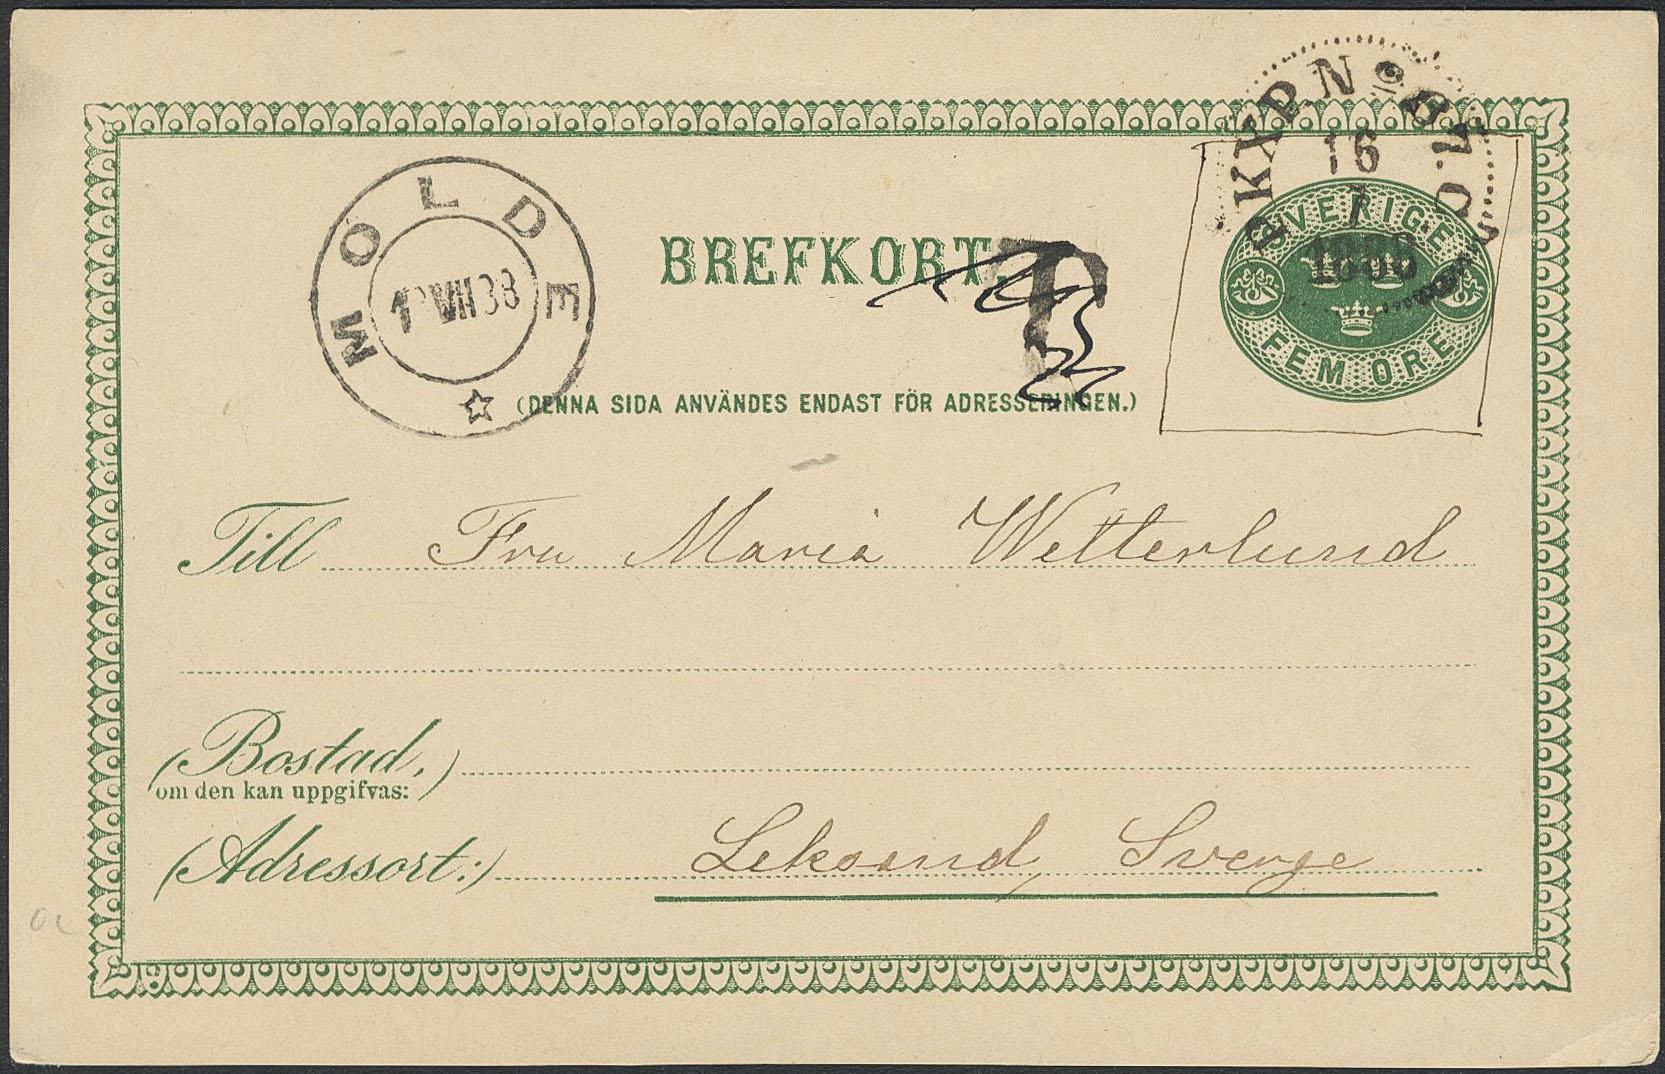 PKXP.N
16
1
1888
BREFKORT.
T
SVERIGE
FEM ÖRE
MOLDE
VII 88
(DENNA SIDA ANVÄNDES ENDAST FÖR ADRESSERINGEN.)
Till Fru Maria Wetterlund
(Bostad,)
om den kan uppgifvas:
(Adressort:) Leksand, Sverge